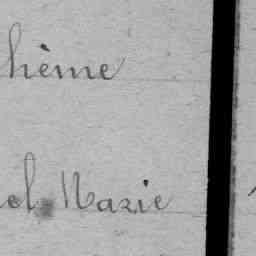 hème
el Marie